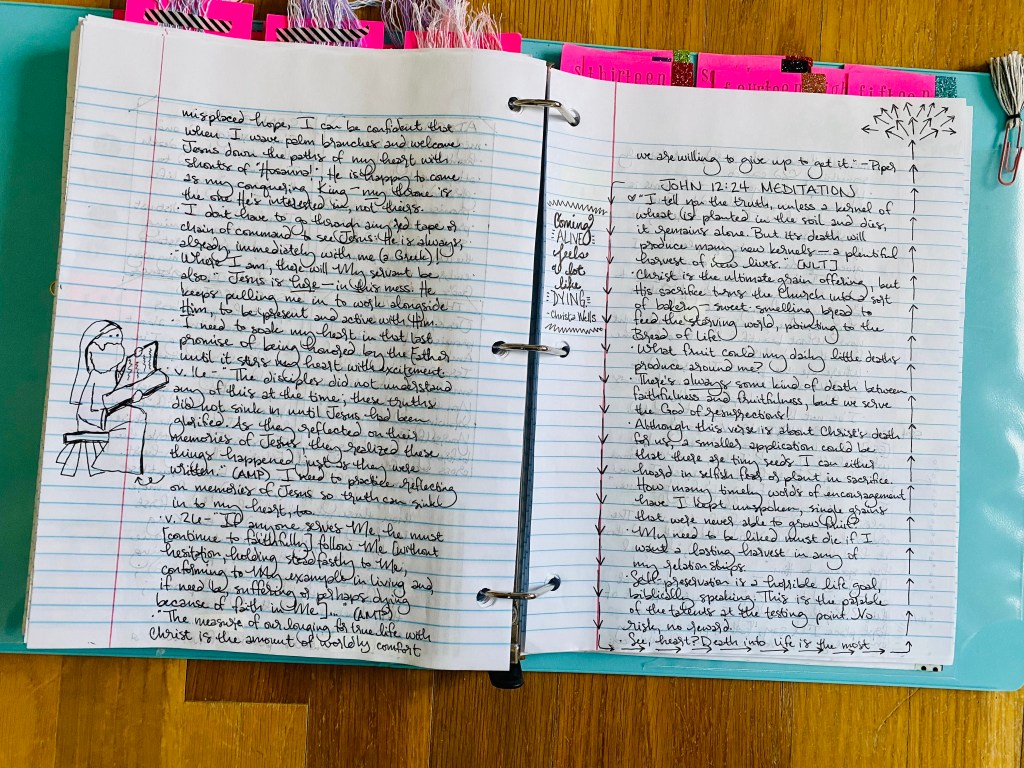 thirteen
fourteen
fifteen
misplaced hope, I can be confident that
when I wave palm branches and welcome
Jesus down the paths of my heart with
shouts of "Hosanna!" He is happy to come
as my conquering King — my throne is
the one He's interested in, not theirs.
· I don't have to go through any red tape or
chain of command to see Jesus. He is always,
already, immediately with me (a Greek)!
· "Where I am, there will My servant be
also." Jesus is here — in this mess. He
keeps pulling me in to work alongside
Him, to be present and active with Him.
· I need to soak my heart in that last
promise of being honored by the Father
until it stirs my heart with excitement.
· v. 16 - "The disciples did not understand
any of this at the time; these truths
did not sink in until Jesus had been
glorified. As they reflected on their
memories of Jesus, they realized these
things happened just as they were
written." (AMP) I need to practice reflecting
on memories of Jesus so truth can sink
in to my heart, too.
· v. 26 - "If anyone serves Me, he must
[continue to faithfully] follow Me [without
hesitation, holding steadfastly to Me,
conforming to My example in living and,
if need be, suffering or perhaps dying
because of faith in Me]..." (AMP)
· "The measure of our longing for true life with
Christ is the amount of worldly comfort
we are willing to give up to get it." -Piper
JOHN 12:24 MEDITATION
"I tell you the truth, unless a kernel of
wheat is planted in the soil and dies,
it remains alone. But its death will
produce many new kernels — a plentiful
harvest of new lives." [NLT]
· Christ is the ultimate grain offering, but
His sacrifice turns the Church into a sort
of bakery — sweet-smelling bread to
feed the starving world, pointing to the
Bread of Life.
· What fruit could my daily little deaths
produce around me?
· There's always some kind of death between
faithfulness and fruitfulness, but we serve
the God of resurrections!
· Although this verse is about Christ's death
for us, a smaller application could be
that there are tiny seeds I can either
hoard in selfish fear or plant in sacrifice.
How many timely words of encouragement
have I kept unspoken, single grains
that were never able to grow fruit?
· My need to be liked must die if I
want a lasting harvest in any of
my relationships.
· Self-preservation is a horrible life goal,
biblically speaking. This is the parable
of the talents at the testing point. No
risk, no reward.
· See, heart? Death into life is the most
Coming
ALIVE
feels
a lot
like
DYING
- Christa Wells